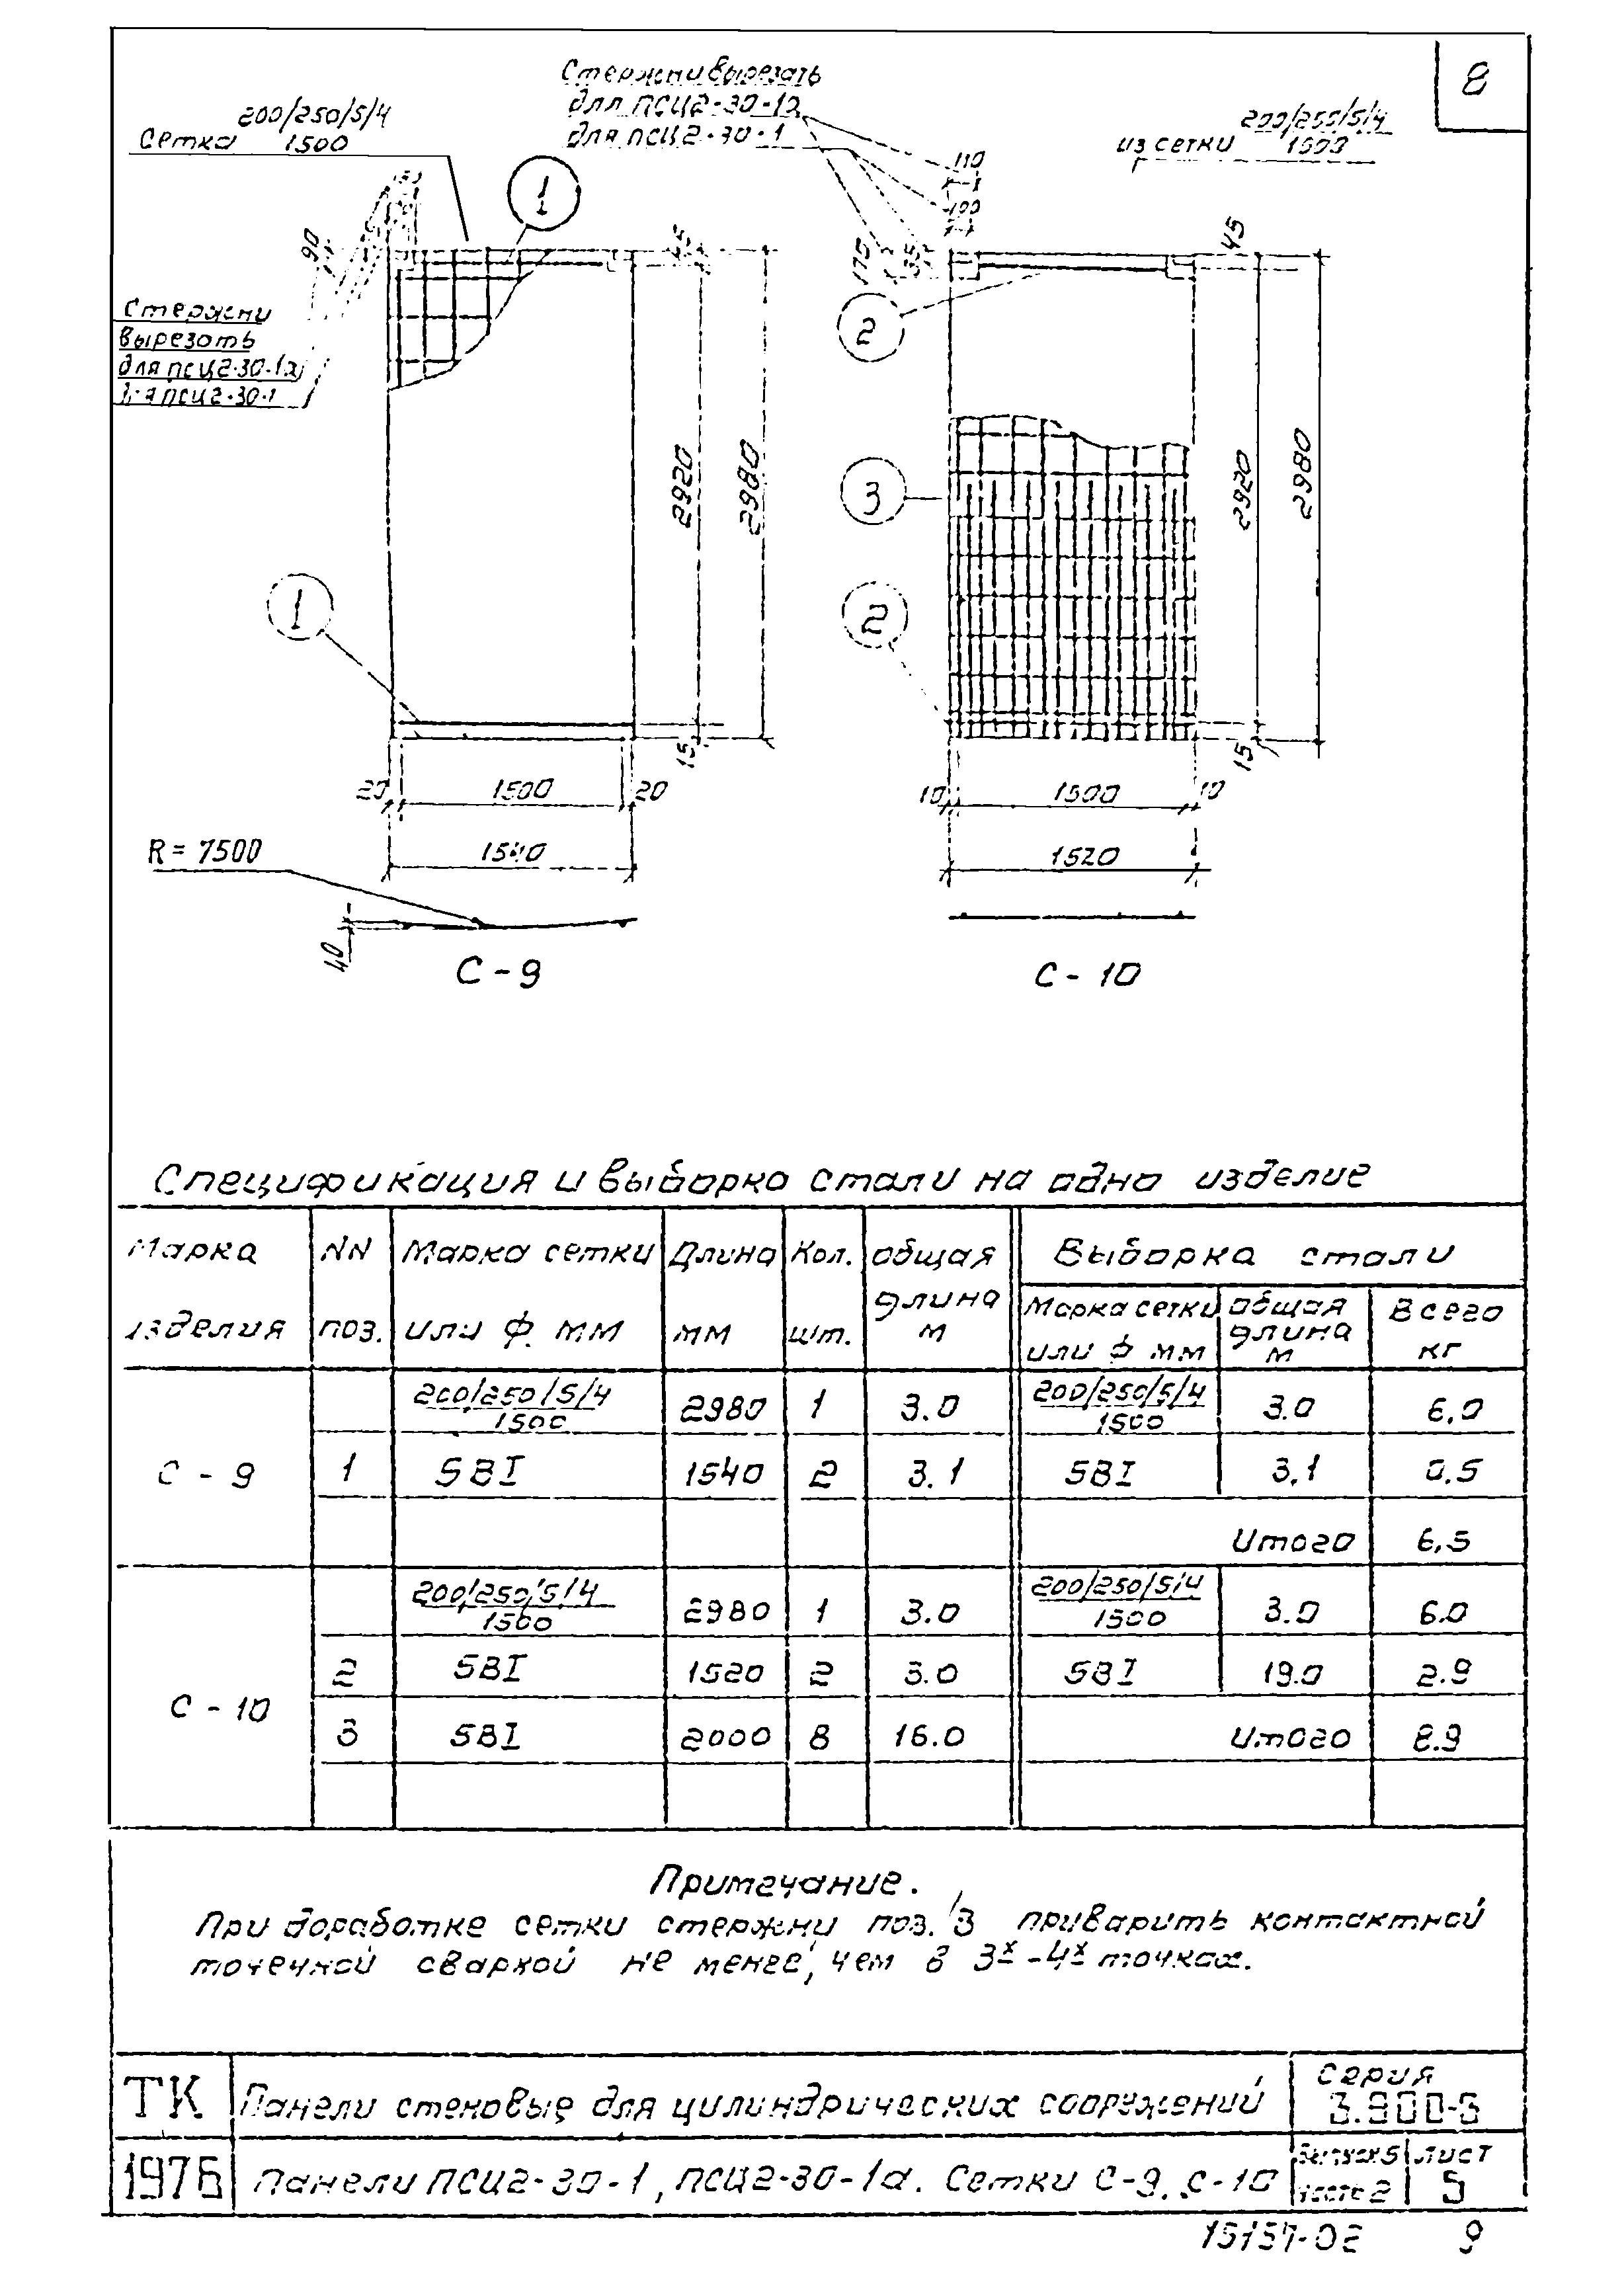 8
Сетка 200/250/5/4 / 1500
Стержни вырезать
для ПСЦ2-30-1а
для ПСЦ2-30-1
из сетки 200/250/5/4 / 1500
110
100
1
90
45
175
45
2
Стержни
вырезать
для ПСЦ2-30-1а
для ПСЦ2-30-1
2920
2980
3
2920
2980
1
2
15
15
20 1500 20
10 1500 10
R = 7500
1540
1520
40
С-9
С-10
Спецификация и выборка стали на одно изделие
Марка изделия | NN поз. | Марка сетки или ф мм | Длина мм | Кол. шт. | Общая длина м | Выборка стали
Марка сетки или ф мм | Общая длина м | Всего кг
200/250/5/4 / 1500 | 2980 | 1 | 3.0 | 200/250/5/4 / 1500 | 3.0 | 6.0
С-9 | 1 | 5ВI | 1540 | 2 | 3.1 | 5ВI | 3.1 | 0.5
Итого | 6.5
200/250/5/4 / 1500 | 2980 | 1 | 3.0 | 200/250/5/4 / 1500 | 3.0 | 6.0
С-10 | 2 | 5ВI | 1520 | 2 | 3.0 | 5ВI | 19.0 | 2.9
3 | 5ВI | 2000 | 8 | 16.0 | Итого | 8.9
Примечание.
При доработке сетки стержни поз. 3 приварить контактной
точечной сваркой не менее, чем в 3х-4х точках.
ТК Панели стеновые для цилиндрических сооружений Серия 3.900-3
1976 Панели ПСЦ2-30-1, ПСЦ2-30-1а. Сетки С-9, С-10 Выпуск 5 часть 2 Лист 5
15157-02 9